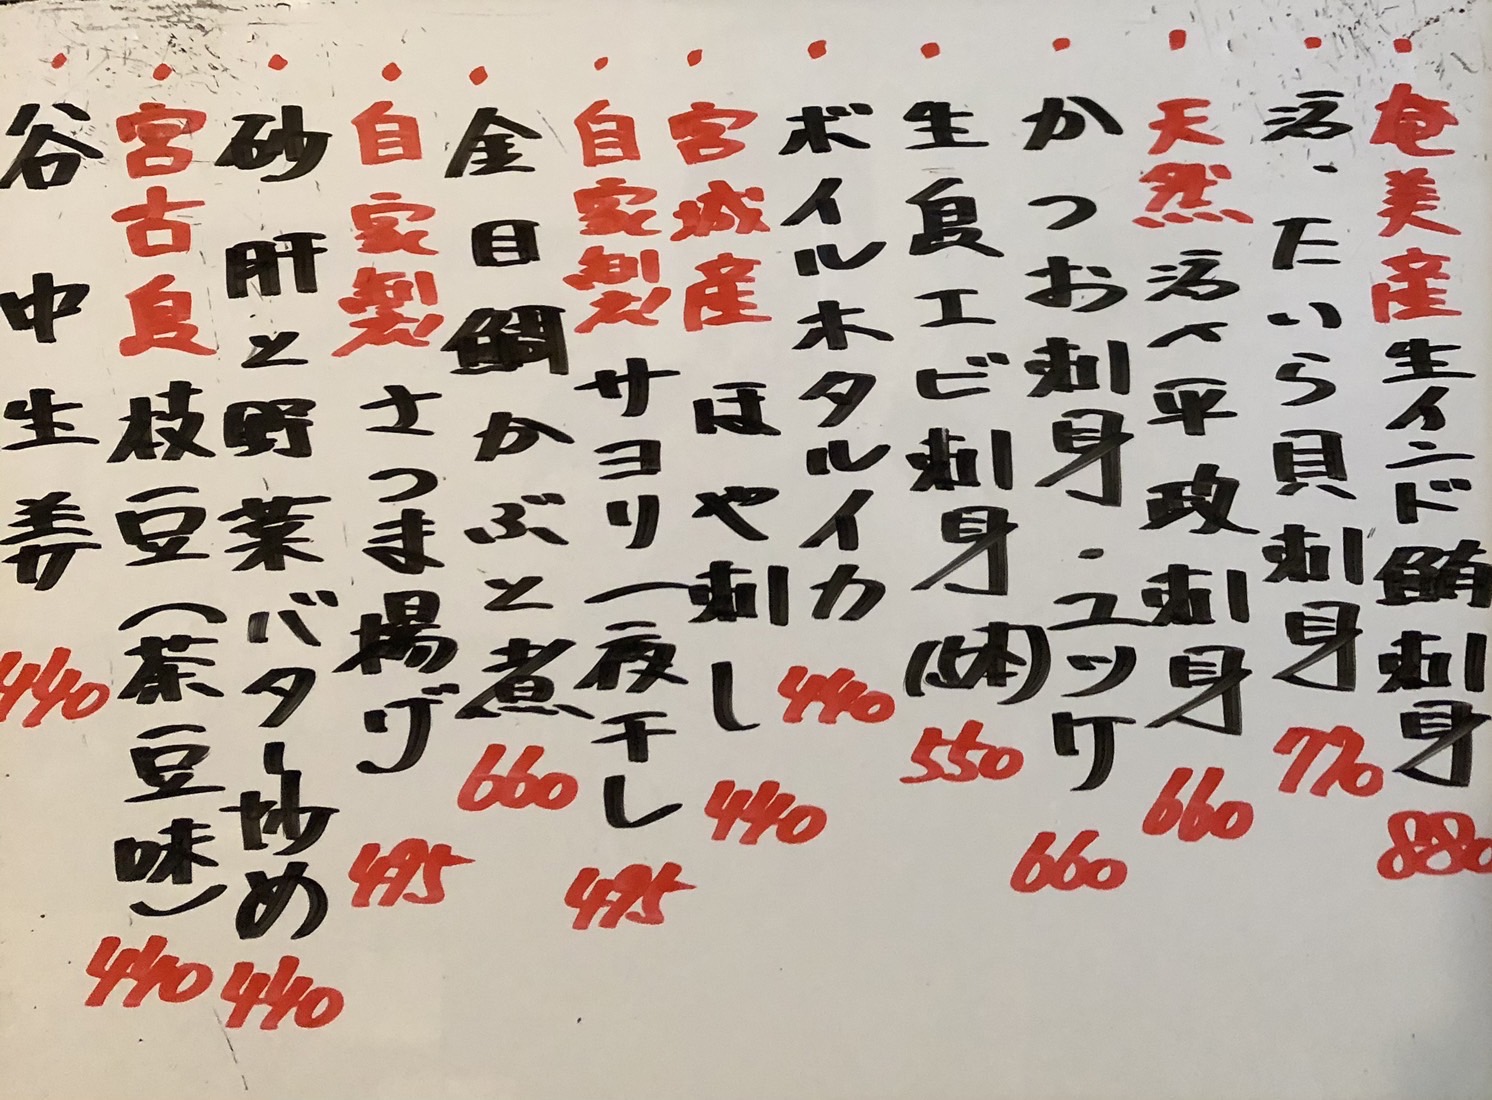 ・奄美産生インド鮪刺身 880
・活・たいら貝刺身 770
・天然活〆平政刺身 660
・かつお刺身・ユッケ 660
・生島エビ刺身(5本) 550
・ボイルホタルイカ 440
・宮城産 ほや刺し 440
・自家製サヨリ一夜干し 495
・金目鯛かぶと煮 660
・自家製さつま揚げ 495
・砂肝と野菜バター炒め 440
・宮古島枝豆(茶豆味) 440
・谷中生姜 440